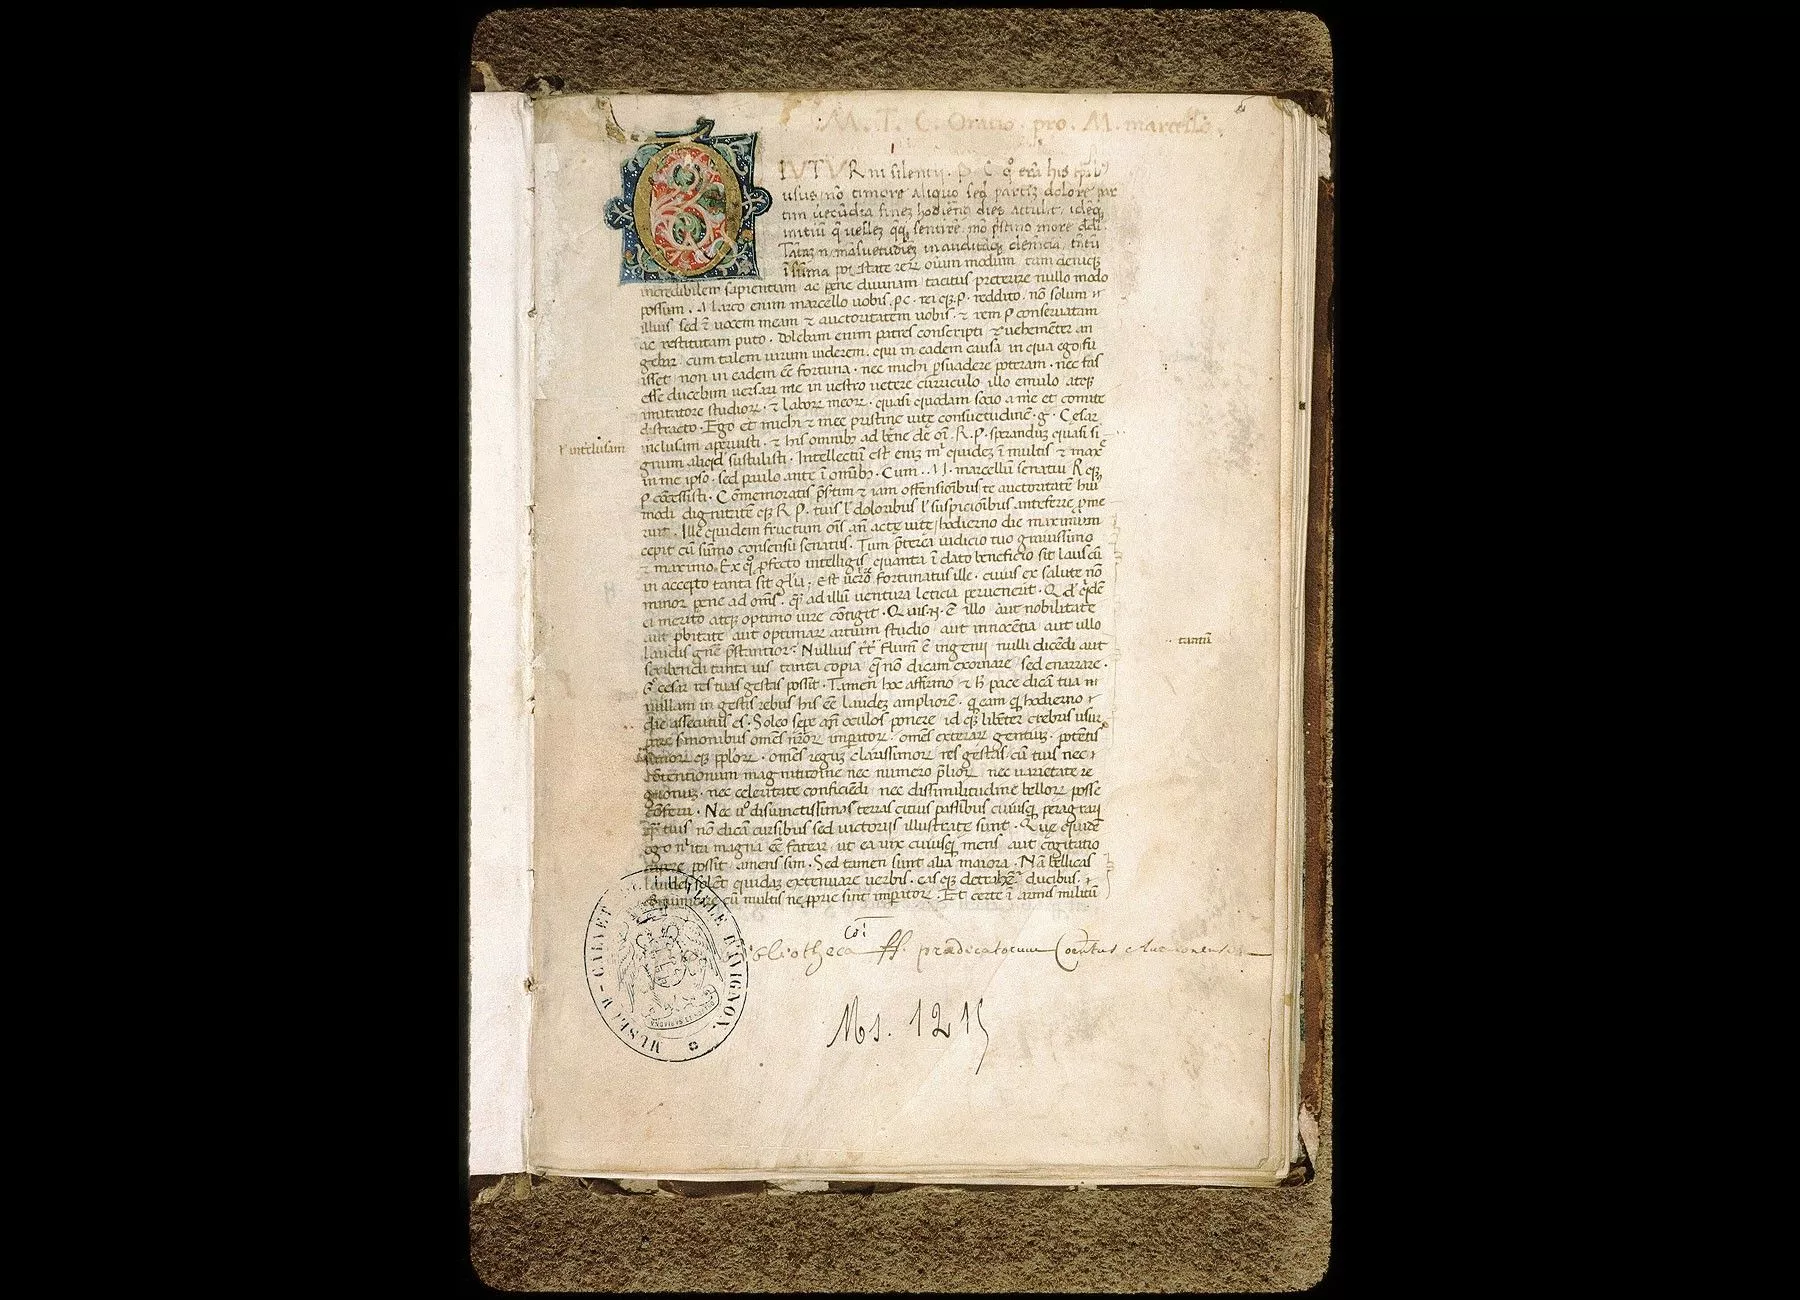 M. T. C. Oratio. pro. M. marcello.
DIUTURNI silentii. P. C. qo erā his
usus nō timore aliquo sed partiz dolore par
tim uecūdia finez hodiern9 dies attulit. idēqz
initiū q̄ uellez qq̄ sentirē. mō p̄stino more dicēdi.
Tātaz n̄ māsuetudiez inauditāqz clemēcia, tātū
ī sūma potestate rerū oīum modum. tam deniqz
incredibilem sapientiam ac pene diuinam tacitus preterire nullo modo
possum. Marco enim marcello uobis. p.c. rei qz. p. reddito. nō solum
illius sed & uocem meam & auctoritatem uobis. & rem p conseruatam
ac restitutam puto. Dolebam enim patres conscripti & uehemēter an
gebar. cum talem uirum uiderem. qui in eadem causā in qua ego fu
isset non in eadem eē fortuna. nec michi p̄suadere poteram. nec fas
esse ducebam uersari me in uestro uetere curriculo. illo emulo atqz
imitatore studior. & labor meor. quasi quodam socio a me et comite
distracto. Ego et michi & mee pristine uite consuetudinē. g. Cesar
īnclusam aperuisti. & his omnibus ad bene de oī. R.P. sperandū quasi si
l' interclusam
gnum aliqid sustulisti. Intellectū est eniz mi quidez ī multis & max
in me ipso. sed paulo ante ī omībus. Cum. M. marcellū senatui R qz
p cōcessisti. Cōmemoratis p̄stim & iam offensionibus te auctoritatē hui
modi dignitatē qz R P. tuis l' doloribus l' suspicionibus anteferre
runt. Ille equidem fructum oīs an̄ actę uitę hodierno die maximum
cepit cū sūmo consensu senatus. Tum p̄terea iudicio tuo grauissimo
& maximo. Ex qo p̄fecto intelligis quanta ī dato beneficio sit laus cū
in accepto tanta sit glīa. Est uero fortunatus ille. cuius ex salute nō
minor pene ad om̄s. q̄ ad illū uentura leticia peruenerit. Qd qidē
ei merito atqz optimo iure cōtigit. Quis .n. ē illo aut nobilitate
aut p̄bitate aut optimar artium studio aut innocētia aut ullo
laudis gn̄e p̄stantior. Nullius tāt flum ē ingenij nulli dicēdi aut
tantū
scribendi tanta uis tanta copia q̄ nō dicam exornare sed enarrare.
G. cesar res tuas gestas possit. Tamen hoc affirmo & h pace dicā tua
nullam in gestis rebus his eē laudez ampliorē. q̄ eam q̄ hodierno
die assecutus es. Soleo sepe an̄ oculos ponere id qz libēter crebris usur
pare sermonibus omēs nr̄or imperator. omēs exterar gentiuz. potētis
simor qz pp̄lor. omēs reguz clarissimor res gestas cū tuis nec
cōtentionum magnitudine nec numero p̄lior nec uarietate re
gionuz. nec celeritate conficiēdi nec dissimilitudine bellor posse
cōferri. Nec uo disiunctissimas terras citius passibus cuiusqz peragrari
q̄ tuis nō dicā cursibus sed uictorijs illustratę sunt. Quę quidē
ego ni ita magna eē fatear. ut ea uix cuiusqz mens aut cogitatio
capere possit amens sim. Sed tamen sunt alia maiora. Nā bellicas
laudes solēt quidaz extenuare uerbis. eas qz detrahere ducibus
cōmunicare cū multis ne pprie sint imperator. Et certe ī armis militū
Bibliotheca ff. prædicatorum Conūentus Auenionensis
Coī
Ms. 1215
MUSEUM-CALVET VILLE D'AVIGNON